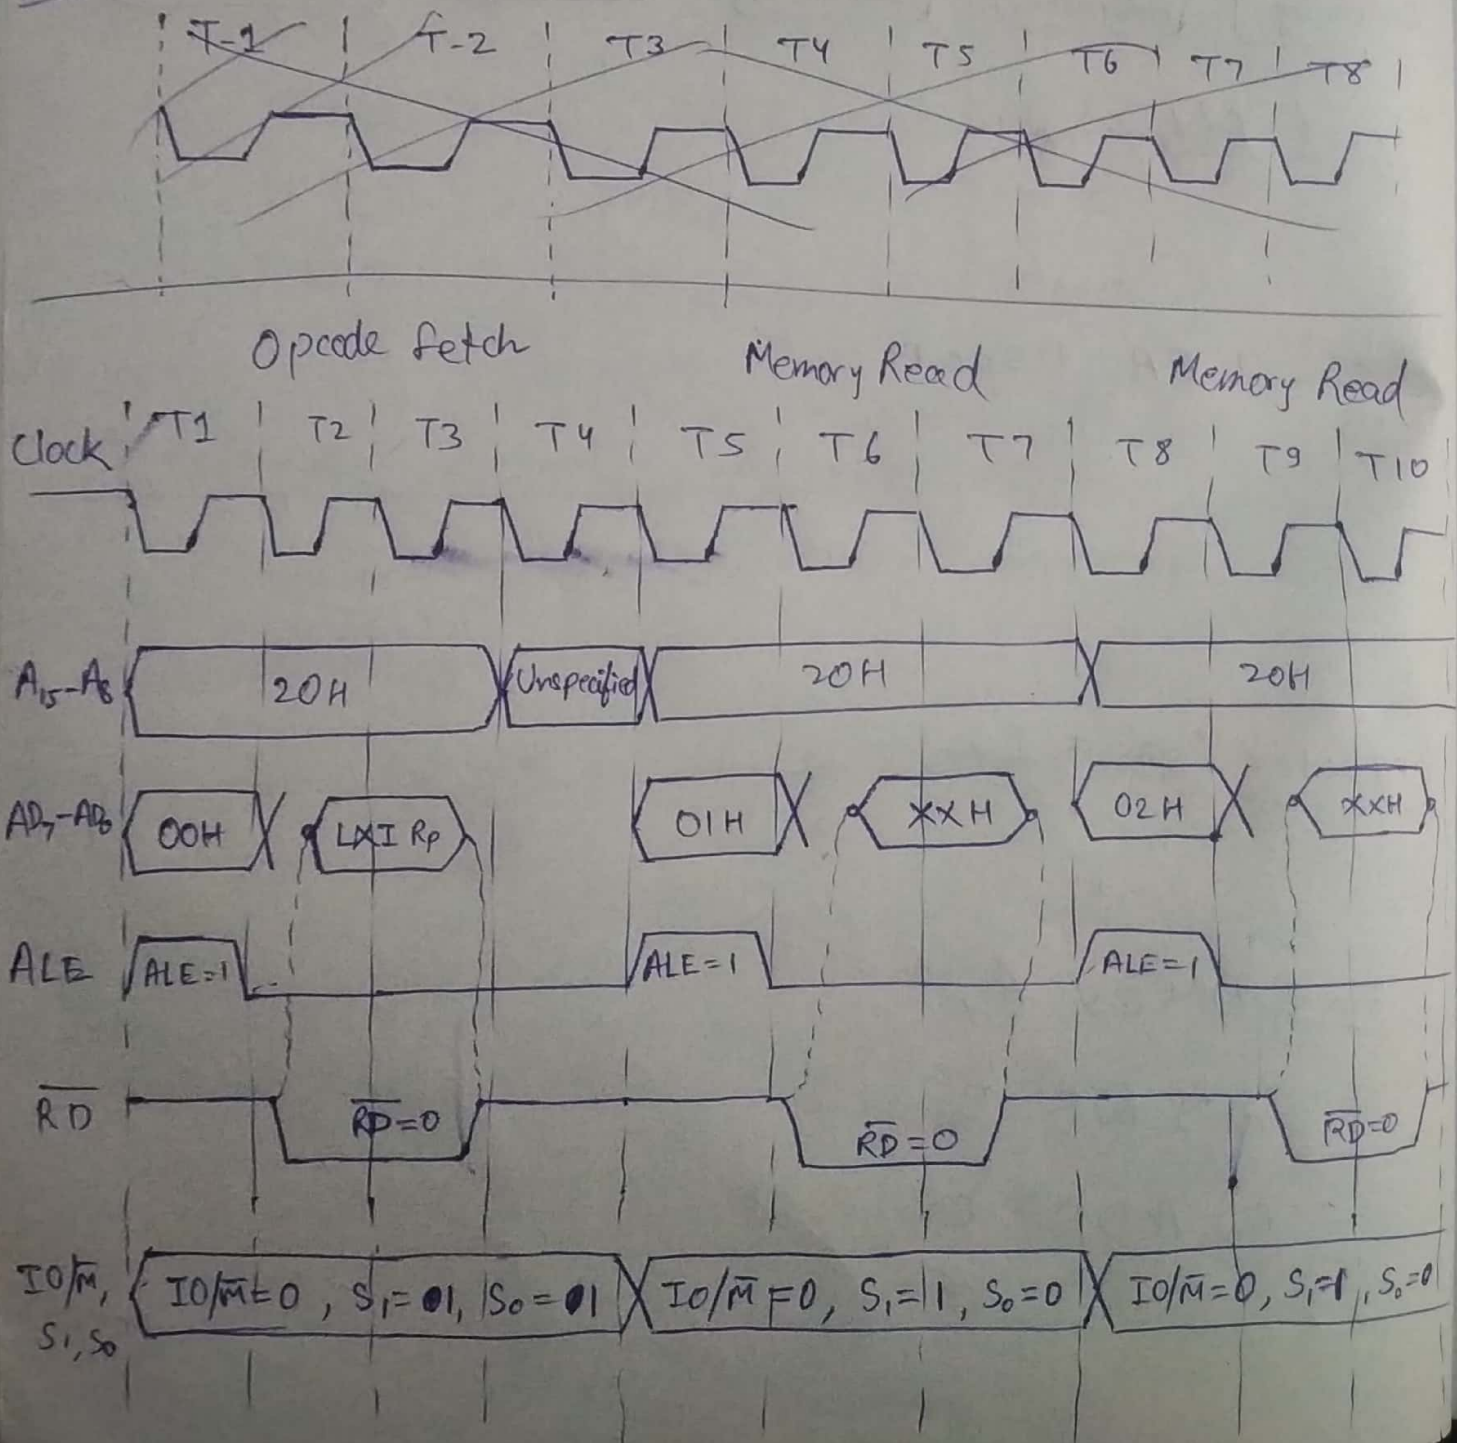 T-1 T-2 T3 T4 T5 T6 T7 T8
Opcode fetch Memory Read Memory Read
Clock T1 T2 T3 T4 T5 T6 T7 T8 T9 T10
A15-A8 20H Unspecified 20H 20H
AD7-AD0 00H LXI Rp 01H XXH 02H XXH
ALE ALE=1 ALE=1 ALE=1
R̅D̅ R̅D̅=0 R̅D̅=0 R̅D̅=0
IO/M̅, IO/M̅=0, S1=1, S0=1 IO/M̅=0, S1=1, S0=0 IO/M̅=0, S1=1, S0=0
S1, S0